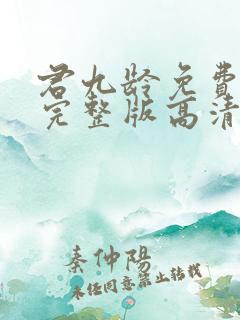 君九龄免费
完整版高清
秦仲阳
未经同意禁止转载